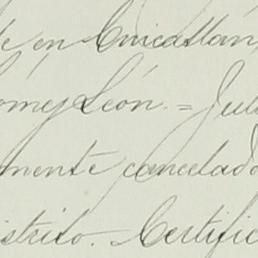 de en Cuicatlán,
ómez León. = Juli
mente cancelado
istrito. Certific